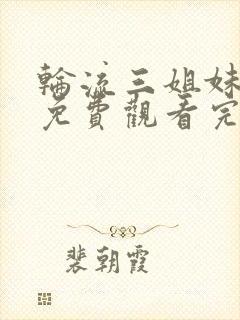 輪流三姐妹
免費觀看完
裴朝霞